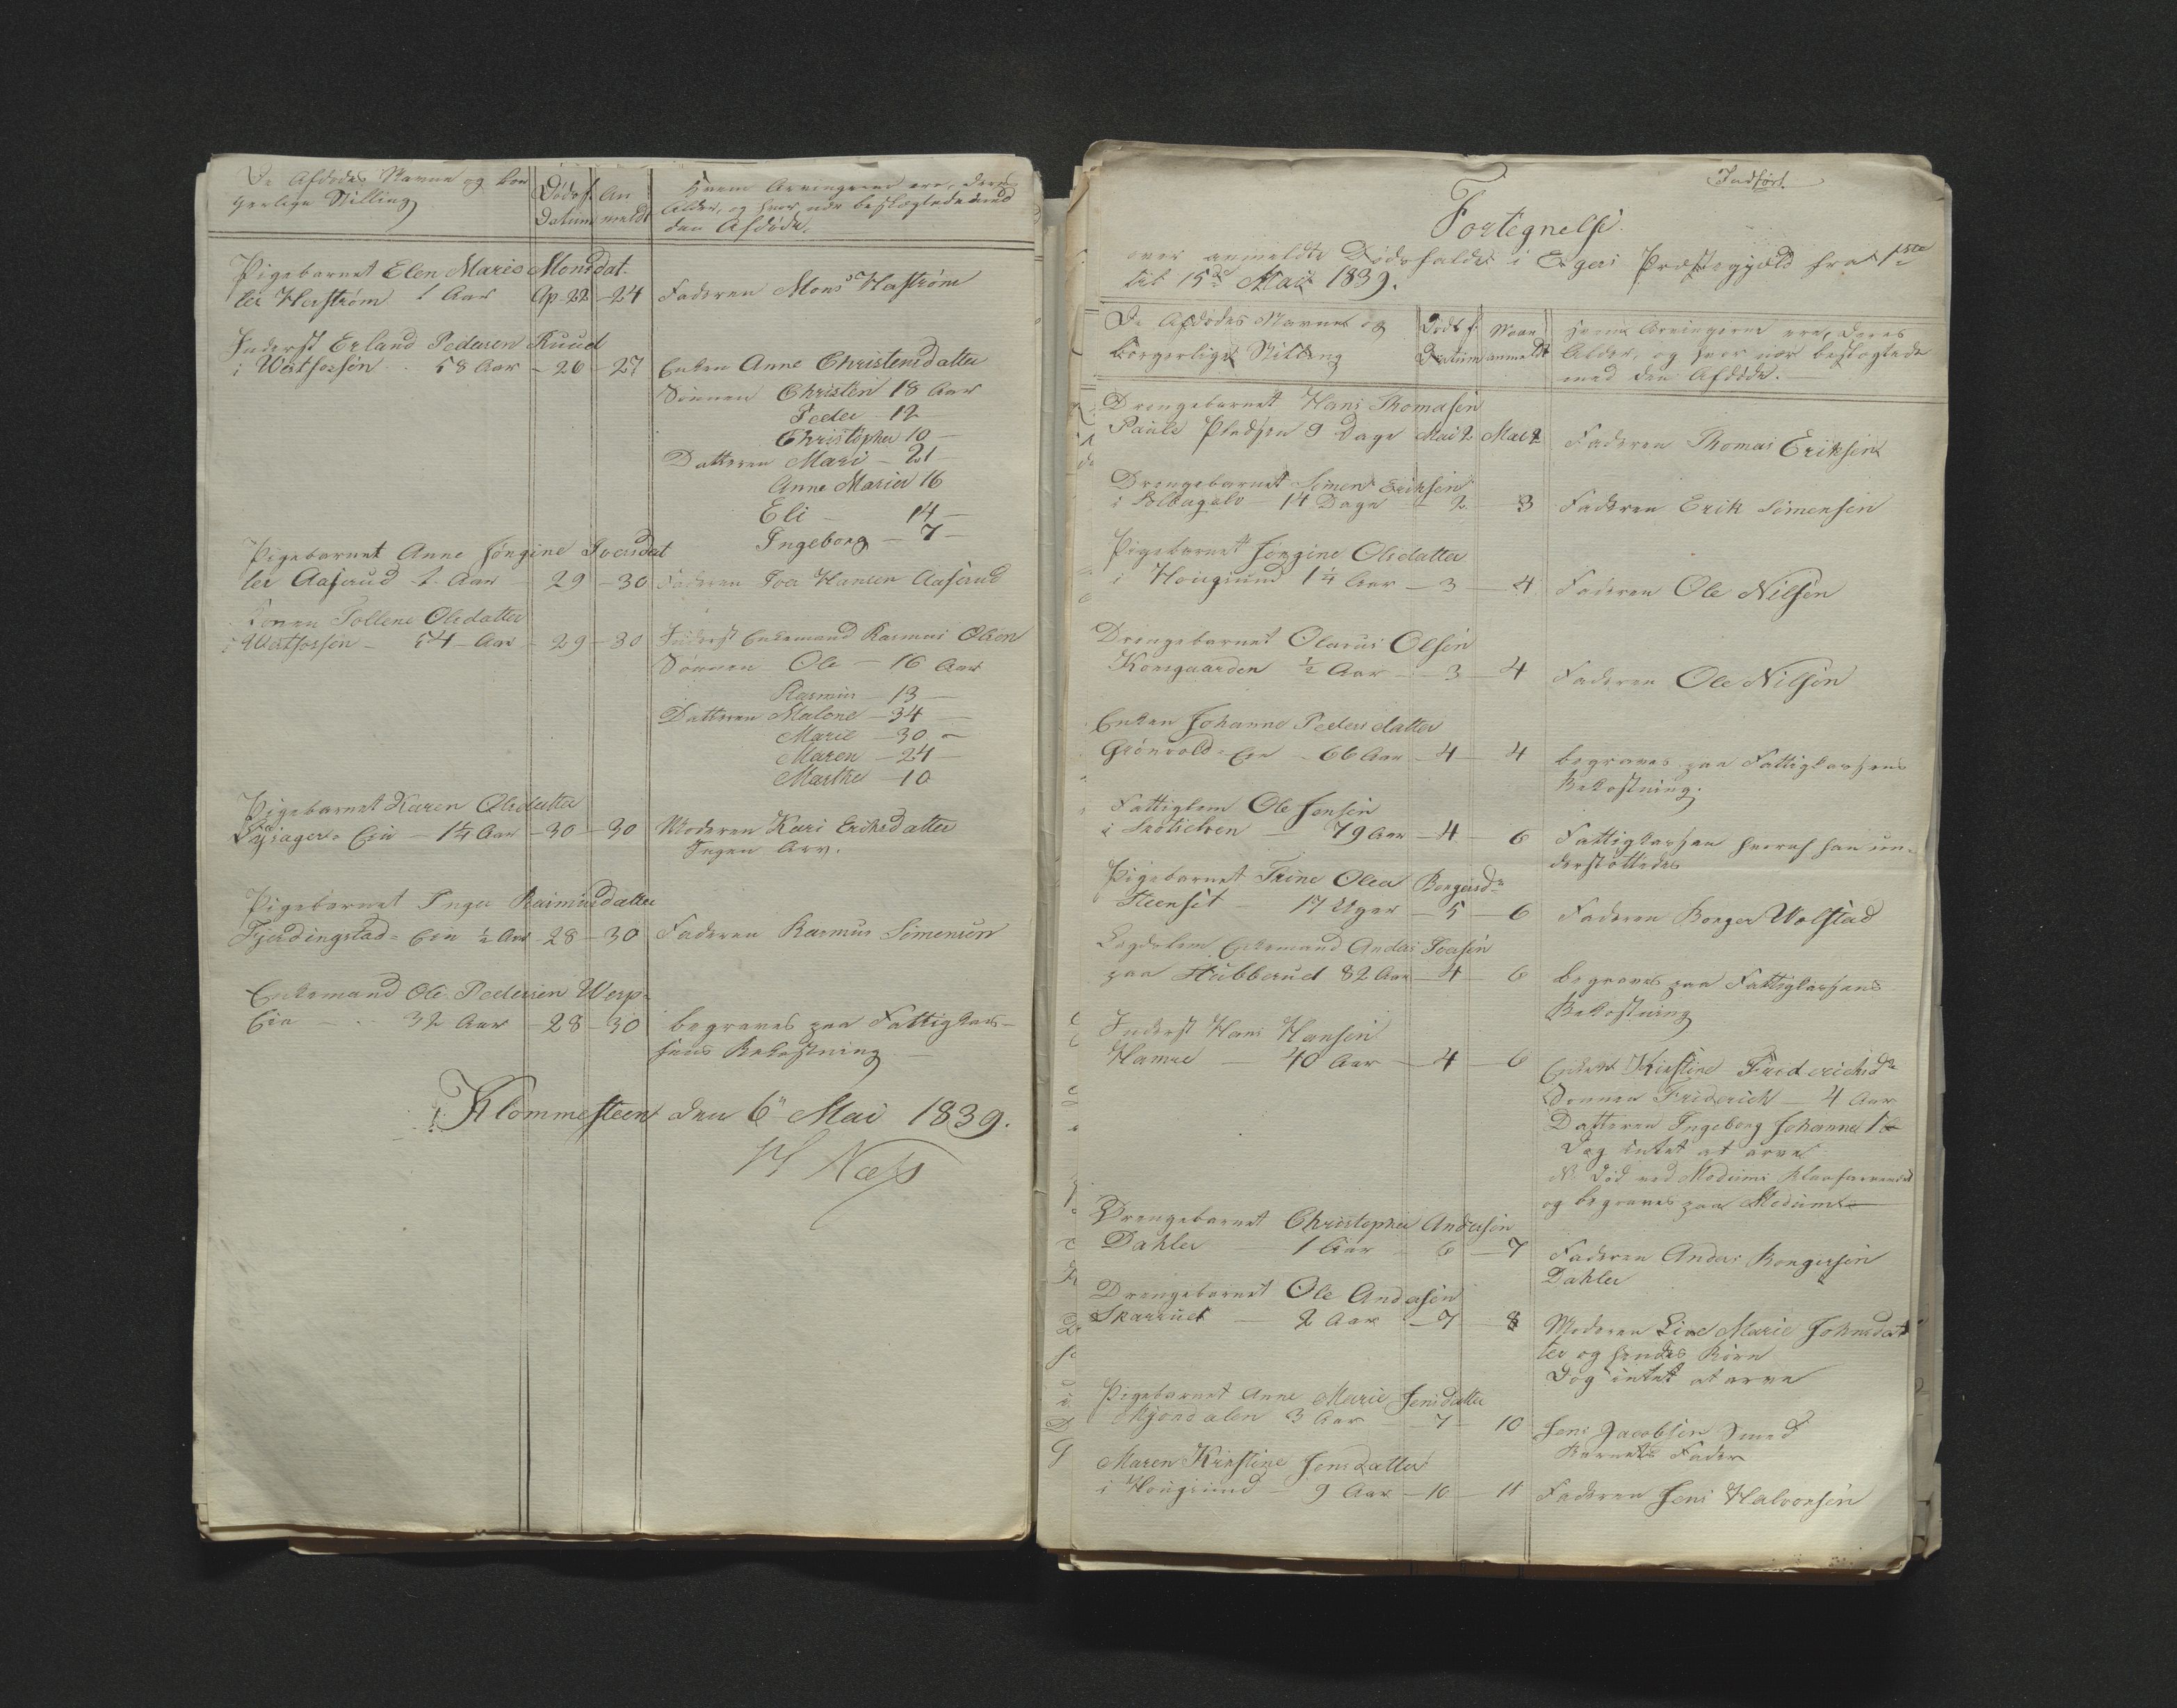 De Afdødes Navne og bor
gerlige Stilling
Dødsf. Datum
An meldt
Hvem Arvingerne ere, deres
Alder, og hvor nær beslægtede med
den Afdøde.
Pigebarnet Elen Marie Monsdat
ter Herstrøm 1 Aar Ap. 22 - 24 Faderen Mons Hæstrøm
Inderst Erland Pedersen Ruud
i Westfossen 58 Aar - 26 - 27 Enken Anne Christensdatter
Sønnen Christen 18 Aar
Peder - 12
Christopher 10 -
Datteren Mari - 21 -
Anne Maria 16
Eli - 14 -
Ingeborg - 7 -
Pigebarnet Anne Jørgine Iversdat
ter Aaserud 1 Aar - 29 - 30 Faderen Iver Hansen Aaserud
Konen Pollene Olsdatter
i Westfossen - 54 - Aar - 29 - 30 Inderst Enkemand Rasmus Olsen
Sønnen Ole - 16 Aar
Rasmus - 13 -
Datteren Malene - 34 -
Marie - 30 -
Maren - 24 -
Marthe - 10
Pigebarnet Karen Olsdatter
Eie - 1 1/4 Aar - 30 - 30 Moderen Kari Eriksdatter
Ingen Arv.
Pigebarnet Inger Rasmusdatter
Fjerdingstad-Eie 1/2 Aar - 28 - 30 Faderen Rasmus Simensen
Enkemand Ole Pedersen Werp-
Eie - 32 Aar - 28 - 30 begraves paa Fattigkas-
sens Bekostning -
Klommesteen den 6 Mai 1839.
H Næss
Indført
Fortegnelse
over anmeldte Dødsfalde i Egers Præstegjæld fra 1ste
til 15de Mai 1839.
De Afdødes Navne og
borgerlige Stilling
Dødsf. Datum
Naar anmeldt
Hvem Arvingerne ere, deres
Alder, og hvor nær beslægtede
med den Afdøde.
Drengebarnet Hans Thomasen
Paule Pladsen 9 Dage Mai 2 Mai 2 Faderen Thomas Eriksen
Drengebarnet Simen Eriksen
i 14 Dage - 2 - 3 Faderen Erik Simensen
Pigebarnet Jørgine Olsdatter
i Hougsund 1 1/4 Aar - 3 - 4 Faderen Ole Nilsen
Drengebarnet Olaus Olsen
Korsgaarden 1/2 Aar - 3 - 4 Faderen Ole Nilsen
Enken Johanne Pedersdatter
Grønvold-Eie - 66 Aar - 4 - 4 begraves paa Fattigkassens
Bekostning.
Fattiglem Ole Jensen
i 79 Aar - 4 - 6 Fattigkassen hvoraf han un-
derstøttedes
Pigebarnet Trine Olea Borgersdr
Steenset - 17 Uger - 5 - 6 Faderen Borger Wolstad
Lægdslem Enkemand Anders Iversen
paa Stubberud 82 Aar - 4 - 6 begraves paa Fattigkassens
Bekostning
Inderst Hans Hansen
Hamre - 40 Aar - 4 - 6 Enken Kirstine Frederichsdr
Sønnen Friderich - 4 Aar
Datteren Ingeborg Johanne 1
Dog intet at arve
død ved Modums
og begraves paa Modum
Drengebarnet Christopher Andersen
Dahler - 1 Aar - 6 - 7 Faderen Anders Borgersen
Dahler
Drengebarnet Ole Andersen
Skarrud - 2 Aar - 7 - 8 Moderen Lise Marie Johnsdat
ter og hendes Børn
Dog intet at arve
Pigebarnet Anne Marie Jensdatter
Mjøndalen 3 Aar - 7 - 10 Jens Jacobsen Smed
Barnets Fader
Maren Kirstine Jensdatter
i Hougsund - 9 Aar - 10 - 11 Faderen Jens Halvorsen